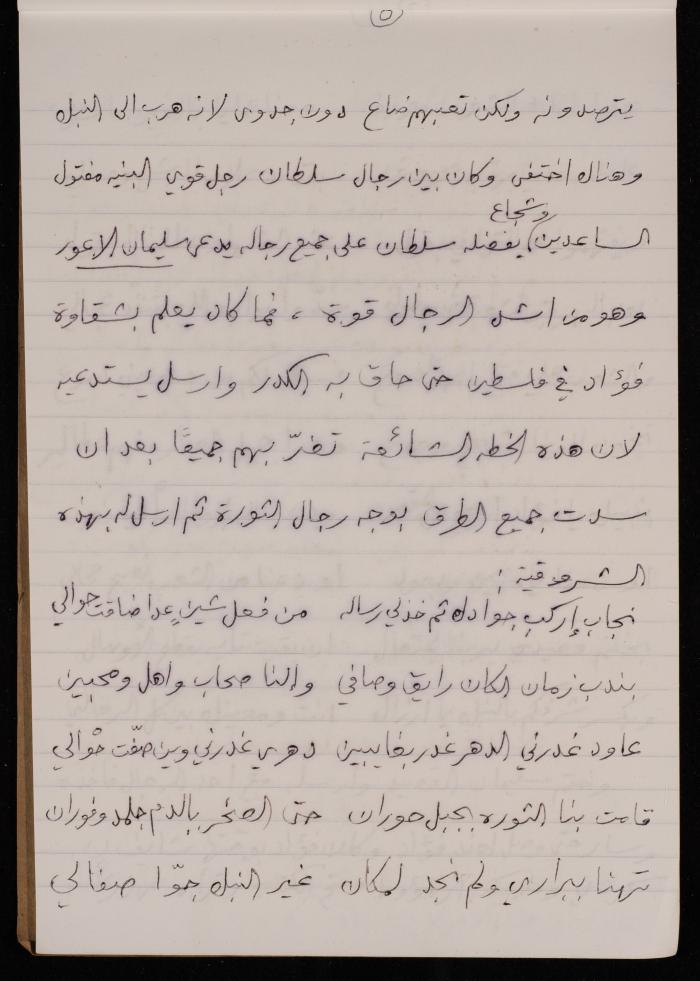 ٥
يترصدونه ولكن تعبهم ضاع دون جدوى لانه هرب الى النبك
وهناك اختفى وكان بين رجال سلطان رجل قوي البنيه مفتول
وشجاع
الساعدين يفضله سلطان على جميع رجاله يدعى سليمان الاعور
وهو من اشد الرجال قوة ، فما كان يعلم بشقاوة
فؤاد في فلسطين حتى حاق به الكدر وارسل يستدعيه
لان هذه الخطه الشائعة تضرّ بهم جميعًا بعد ان
سدت جميع الطرق بوجه رجال الثورة ثم ارسل له بهذه
الشروقية :
نجاب إركب جوادك ثم خذلي رساله من فعل شينٍ عدا ضاقت حوالي
بندب زمان الكان رايق وصافي وإلنا صحاب واهل ومحبين
عاود غدرني الدهر غدر بغايبين دهري غدرني وين صفّت حْوالي
قامت بنا الثوره بجبل حوران حتى الصخر بالدم جلمد وفوران
تهنا ببراري ولم نجد لمكان غير النبك جوّا صفالي